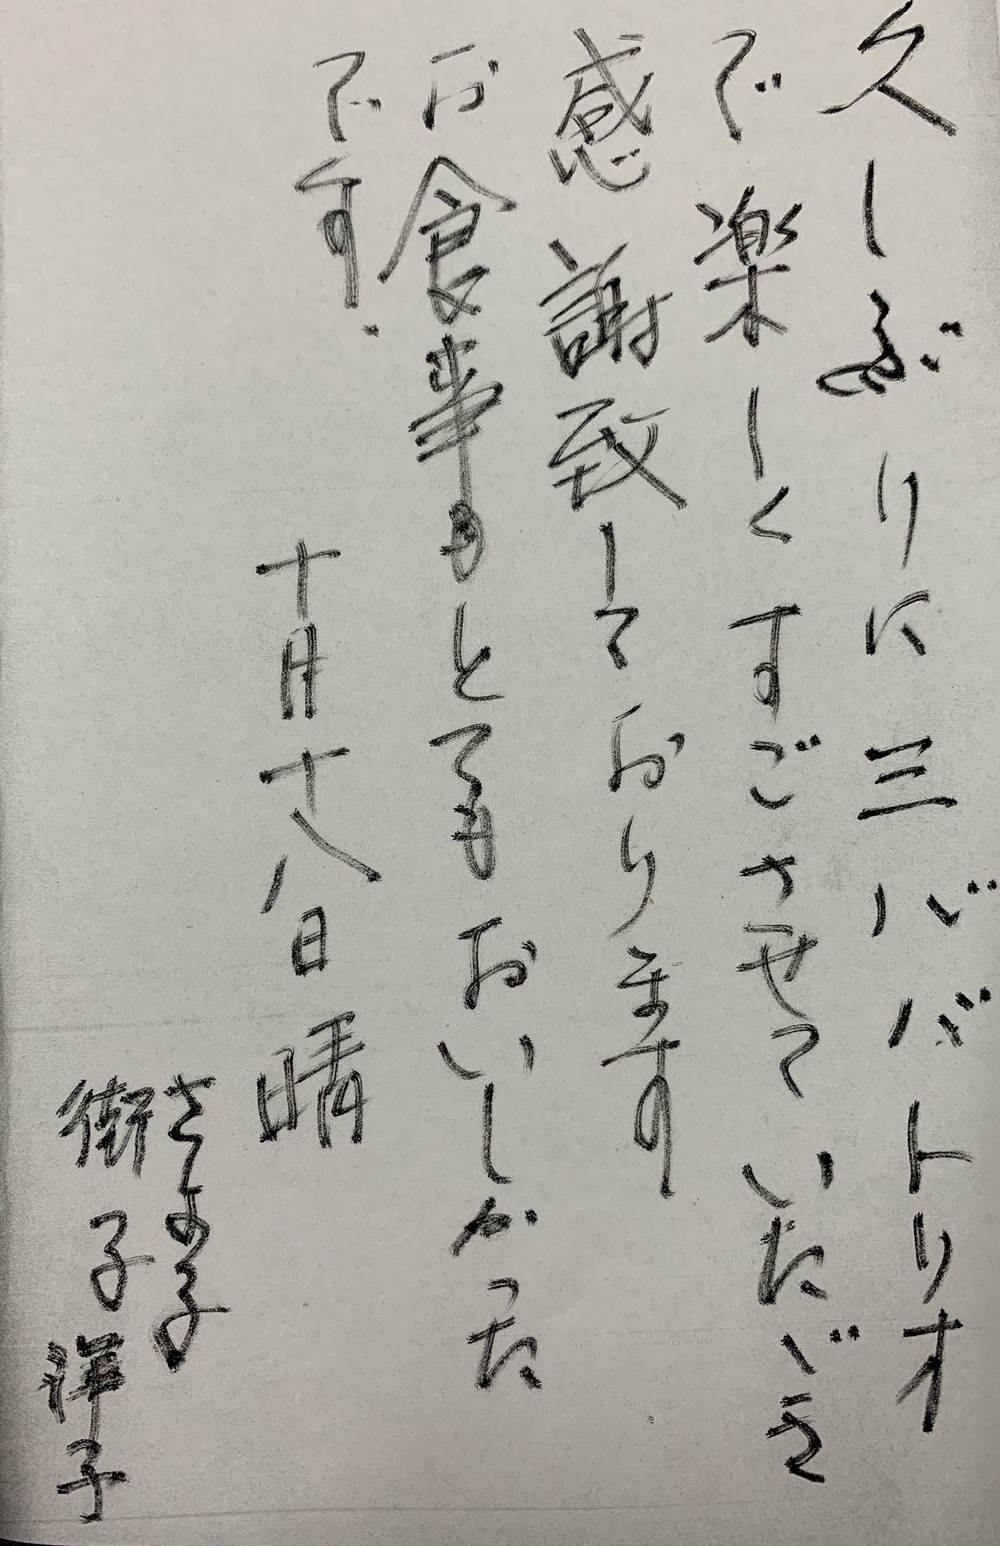 久しぶりに三ババトリオ
で楽しくすごさせていただき
感謝致しております
お食事もとてもおいしかった
です.
十月十八日 晴
さよ子
街子 洋子